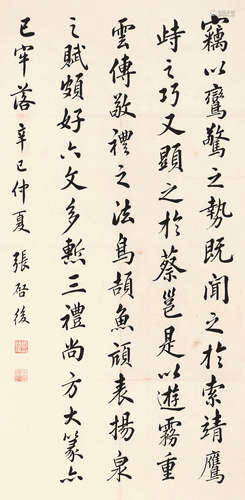 竊以鸞驚之勢既聞之於索靖鷹
峙之巧又顯之於蔡邕是以遊霧重
雲傳敬禮之法鳥頡魚頏表揚泉
之賦頗好六文多慙三禮尚方大篆亦
已牢落 辛巳仲夏 張啓後